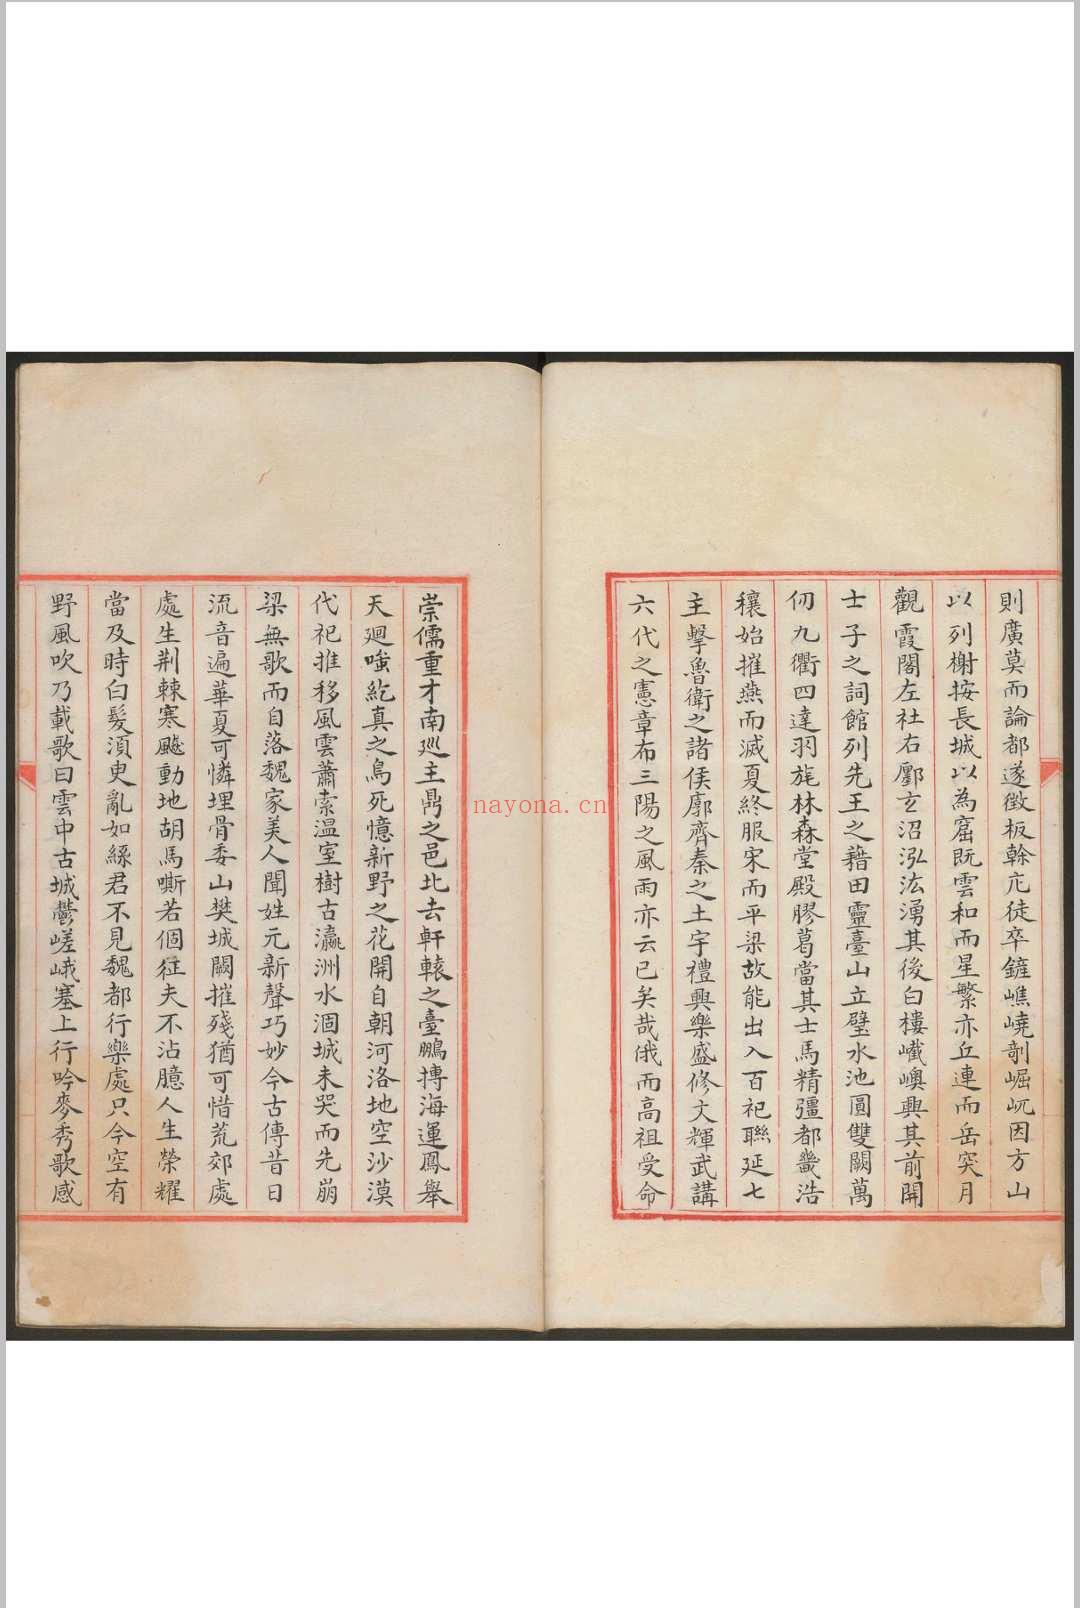 則廣莫而論都遂徵板榦庀徒卒鏟嶕嶢剖崛岉因方山
以列榭按長城以為窟既雲和而星繁亦丘連而岳突月
觀霞閣左社右廛玄沼泓汯湧其後白樓巀嶪興其前開
士子之詞館列先王之藉田靈臺山立璧水池圓雙闕萬
仞九衢四達羽旄林森堂殿膠葛當其士馬精彊都畿浩
穰始摧燕而滅夏終服宋而平梁故能出入百祀聯延七
主擊魯衛之諸侯廓齊秦之土宇禮興樂盛修文輝武講
六代之憲章布三陽之風雨亦云已矣哉俄而高祖受命
崇儒重才南巡主鼎之邑北去軒轅之臺鵬摶海運鳳舉
天迴嗤紇真之鳥死憶新野之花開自朝河洛地空沙漠
代祀推移風雲蕭索溫室樹古瀛洲水涸城未哭而先崩
梁無歌而自落魏家美人聞姓元新聲巧妙今古傳昔日
流音遍華夏可憐埋骨委山樊城闕摧殘猶可惜荒郊處
處生荆棘寒飇動地胡馬嘶若個征夫不沾臆人生榮耀
當及時白髮須臾亂如絲君不見魏都行樂處只今空有
野風吹乃載歌曰雲中古城鬱嵯峨塞上行吟麥秀歌感
nayona.cn